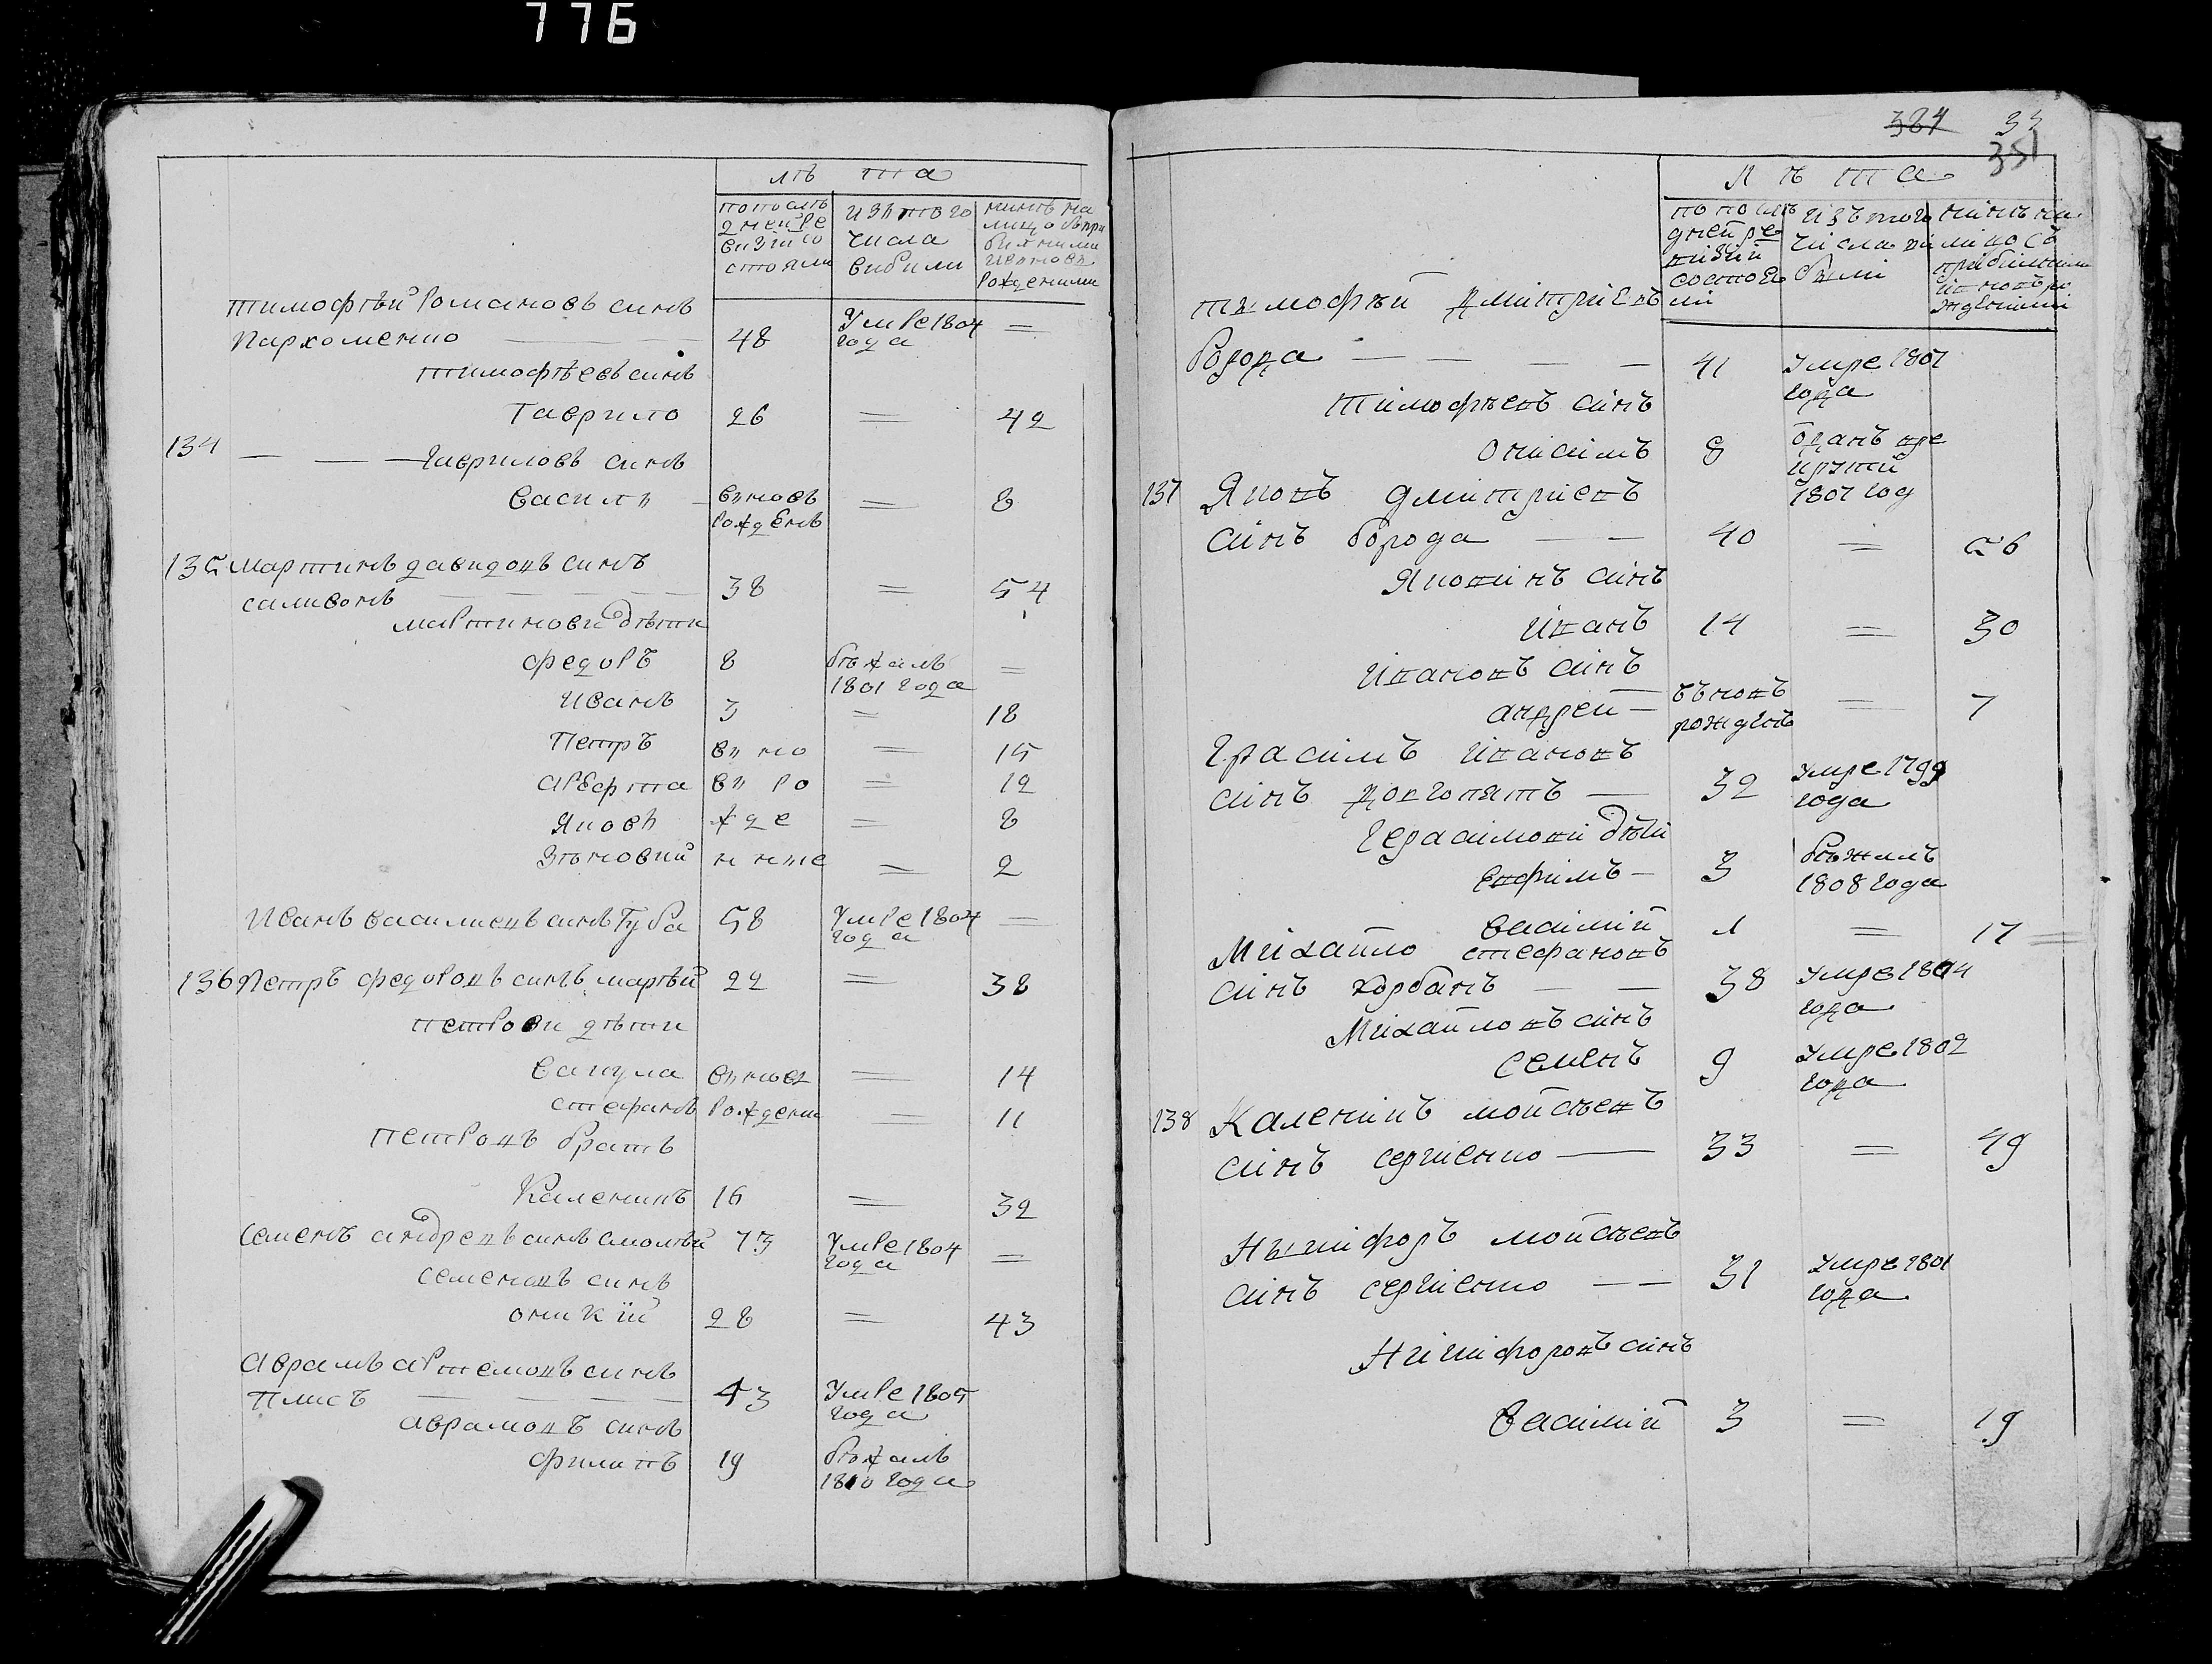 776
лѣта
по послѣ
дней ре
визіи со
стояли
изъ того
числа
выбыли
нинѣ на
лицо съ при
былими
и вновь
рожденими
Тимофѣй Романовъ синъ
Пархоменко — — — 48 Умре 1804 =
года
Тимофѣевъ синъ
Гаврило 26 = 42
134 — — — Гавриловъ синъ
Василь — вновъ = 8
рожденъ
135 Мартинъ давидовъ синъ
саливонъ — — — 38 = 54
мартинови дѣти
федоръ 8 бѣжалъ =
1801 года
Иванъ 3 = 18
Петръ вь но = 15
Арефта вь ро = 12
Яковъ жде = 8
Зѣновий н ние = 2
Иванъ василиевъ синъ Губа 58 Умре 1804 —
года
136 Петръ федоровъ синъ 22 = 38
петрови дѣти
Вакула вьновь = 14
стефанъ рождени = 11
петровъ братъ
Каленикъ 16 = 32
Семенъ андреевъ синъ 73 Умре 1804 =
года
семеновъ синъ
оникій 28 = 43
Аврамъ артемовъ синъ
Плисъ — — — 43 Умре 1805
года
аврамовъ синъ
филипъ 19 бѣжалъ
1810 года
384 33
351
Лѣта
по послѣ
дней ре
визий
состоя
лі
изъ того
числа ви
билі
нинѣ на
лицо съ
прибилими
и вновь ро
жденіми
тимофий дмитриевъ
Борода — — — — 41 Умре 1807
года
Тимофѣевъ синъ
онисимъ 8 отданъ в ре
крути
1807 год
137 Яковъ дмитриевъ
синъ борода — — 40 = 56
Яковинъ синъ
иванъ 14 = 30
ивановъ синъ
андрей — въновъ = 7
рожденъ
Грасимъ ивановъ
синъ довгопятъ — 32 Умре 1799
года
Герасимови дѣти
евфимъ — 3 бѣжалъ
1808 года
василий 1 = 17
Михайло стефановъ
синъ корбанъ — — 38 Умре 1804
года
Михайловъ синъ
семенъ 9 Умре 1802
года
138 Каленикъ мойсѣевъ
синъ сергиенко — 33 = 49
Никифоръ мойсѣевъ
синъ сергиенко — — 31 Умре 1801
года
Никифоровъ синъ
василий 3 = 19